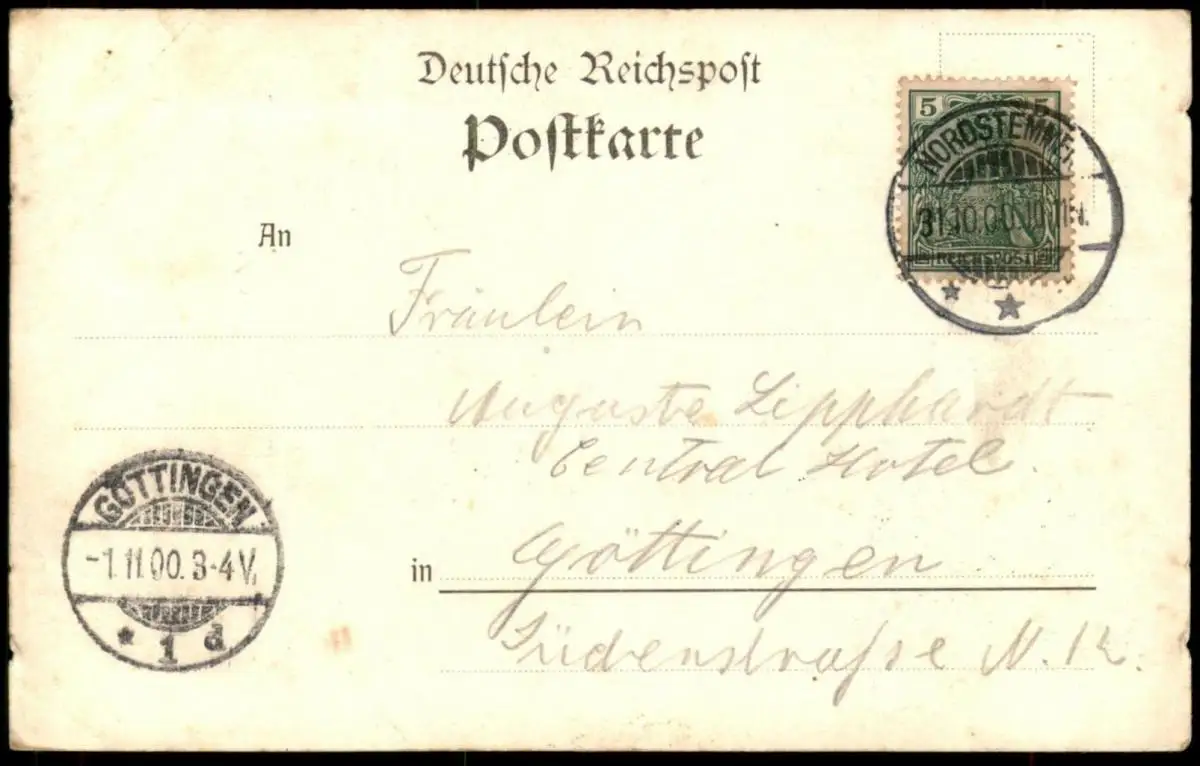 Deutsche Reichspost
Postkarte
5 5
REICHSPOST
NORDSTEMMEN
31.10.00.
An
Fräulein
Auguste Lipphardt
Central Hotel.
in Göttingen
Jüdenstrasse N. 12.
GÖTTINGEN
-1.11.00.3-4V.
* 1 d